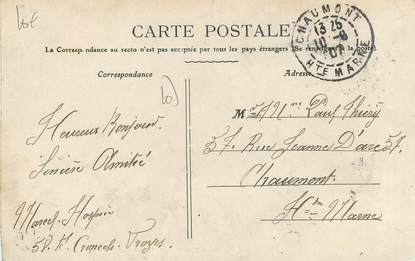 CARTE POSTALE
La Correspondance au recto n'est pas acceptée par tous les pays étrangers (Se renseigner à la poste)
CHAUMONT
13 25
10 -8
07
HTE MARNE
Correspondance
Adresse
Heureux Bonjour
Sincère Amitié
Marcel
Troyes
Paul Thiery
57 Rue Jeanne D'arc 57
Chaumont.
Hte Marne